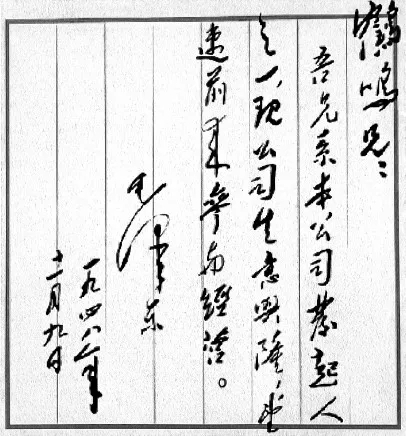 鶴鳴兄：
吾兄系本公司發起人
之一，現公司生意興隆，望
速前来參与經營。
毛澤东
一九四八年
十一月九日